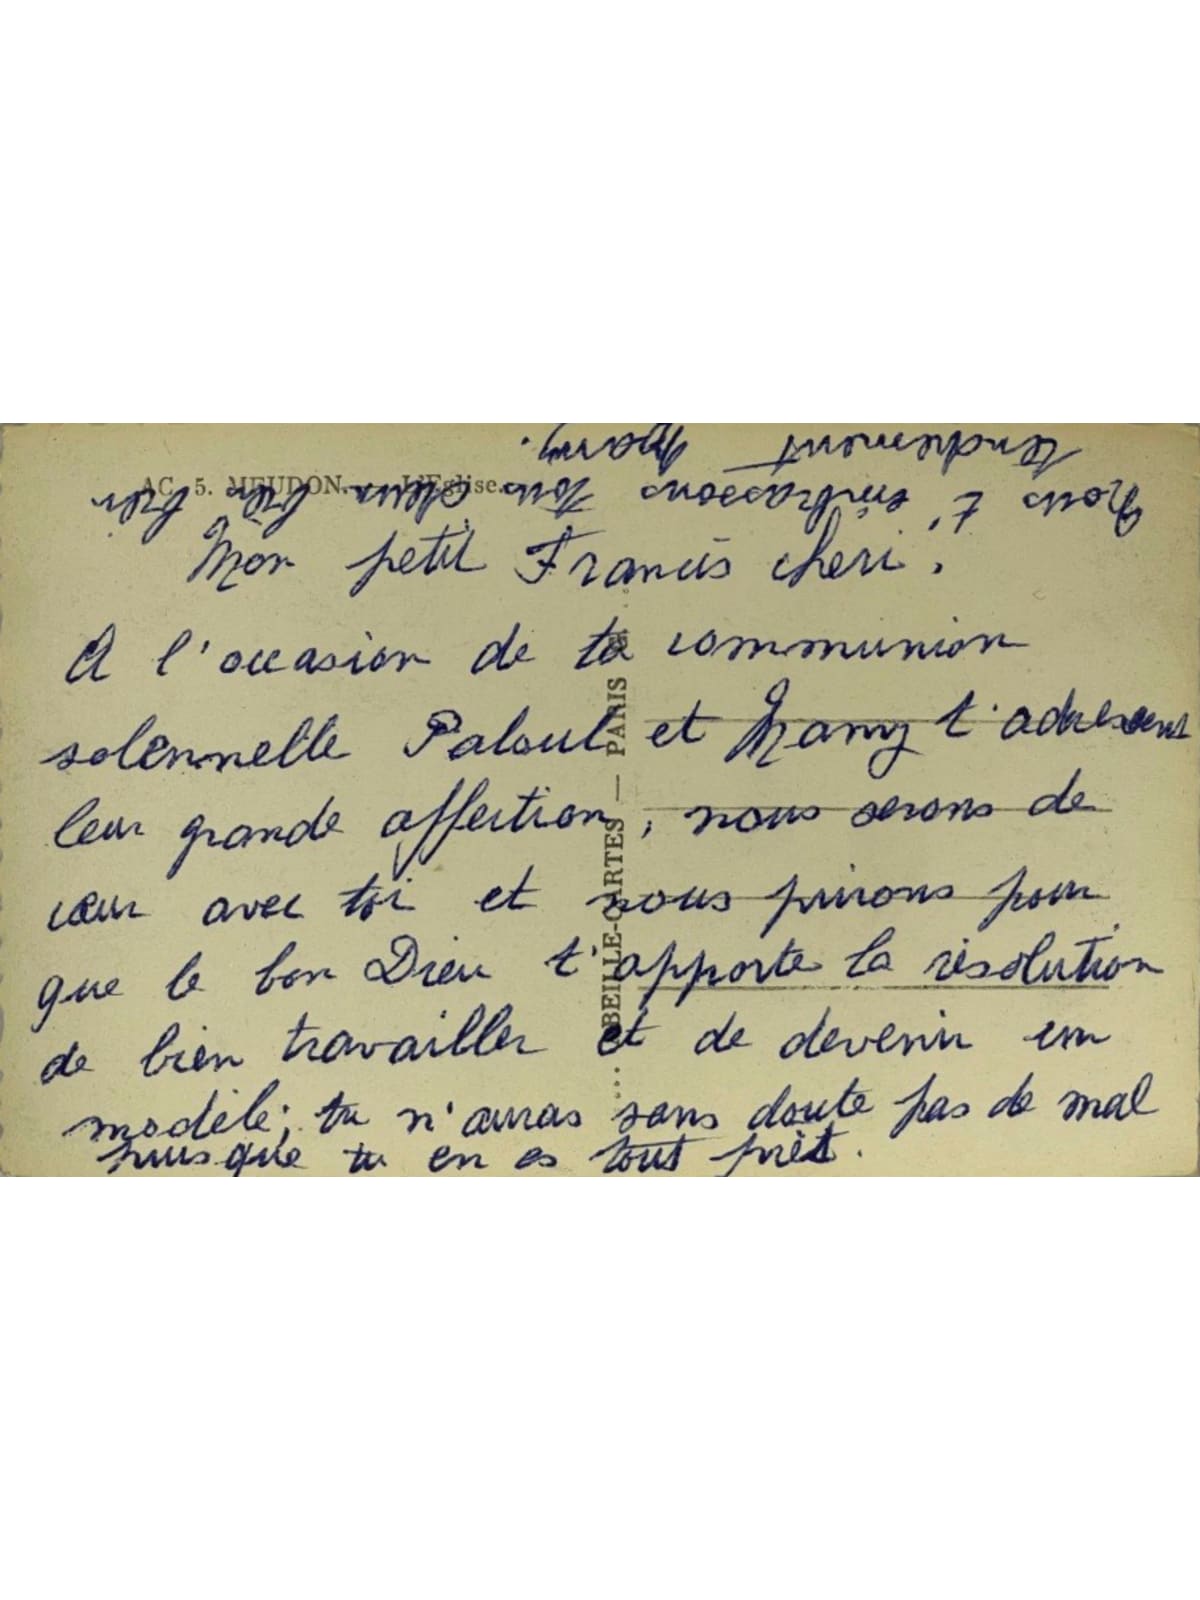 AC. 5. MEUDON. — L'Eglise.
Mon petit Francis cheri,
A l'occasion de ta communion
solennelle Paloul et Mamy t'adressent
leur grande affection, nous serons de
cœur avec toi et nous prirons pour
que le bon Dieu t'apporte la résolution
de bien travailler et de devenir un
modèle; tu n'auras sans doute pas de mal
puisque tu en es tout prêt.
Nous t'embrassons tous deux bien bien
tendrement Mamy.
ABEILLE-CARTES — PARIS